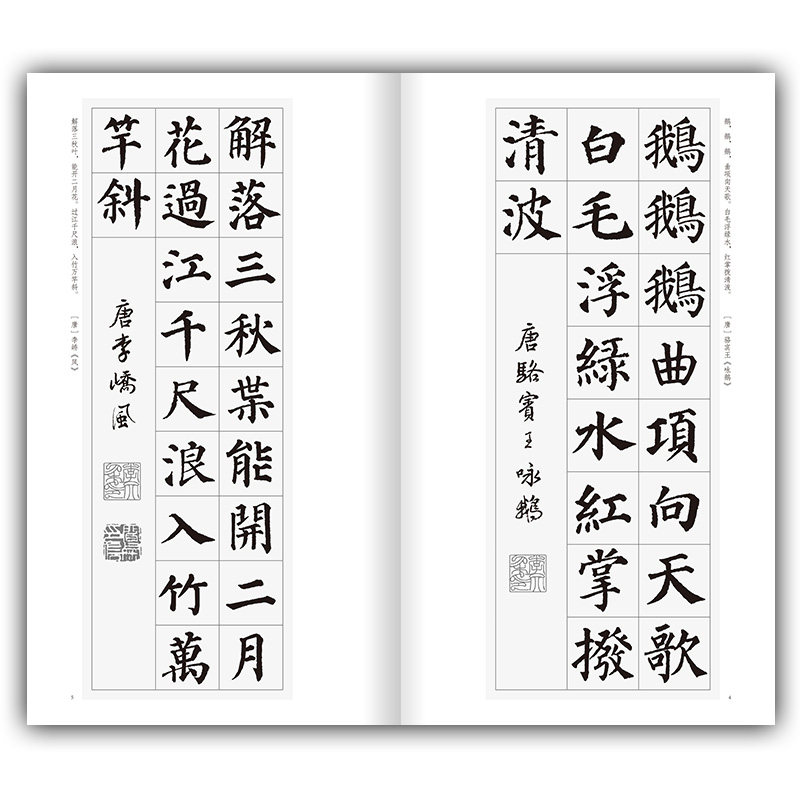 鹅，鹅，鹅，曲项向天歌。白毛浮绿水，红掌拨清波。
［唐］骆宾王《咏鹅》
鵝鵝鵝曲項向天歌
白毛浮綠水紅掌撥
清波
唐駱賓王咏鵝
4
解落三秋叶，能开二月花。过江千尺浪，入竹万竿斜。
［唐］李峤《风》
解落三秋葉能開二月
花過江千尺浪入竹萬
竿斜
唐李嶠風
5